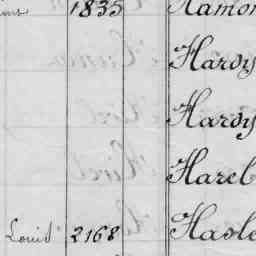 1835 Hamon
Hardy
Hardy
Harel
Louis 2168 Hasle